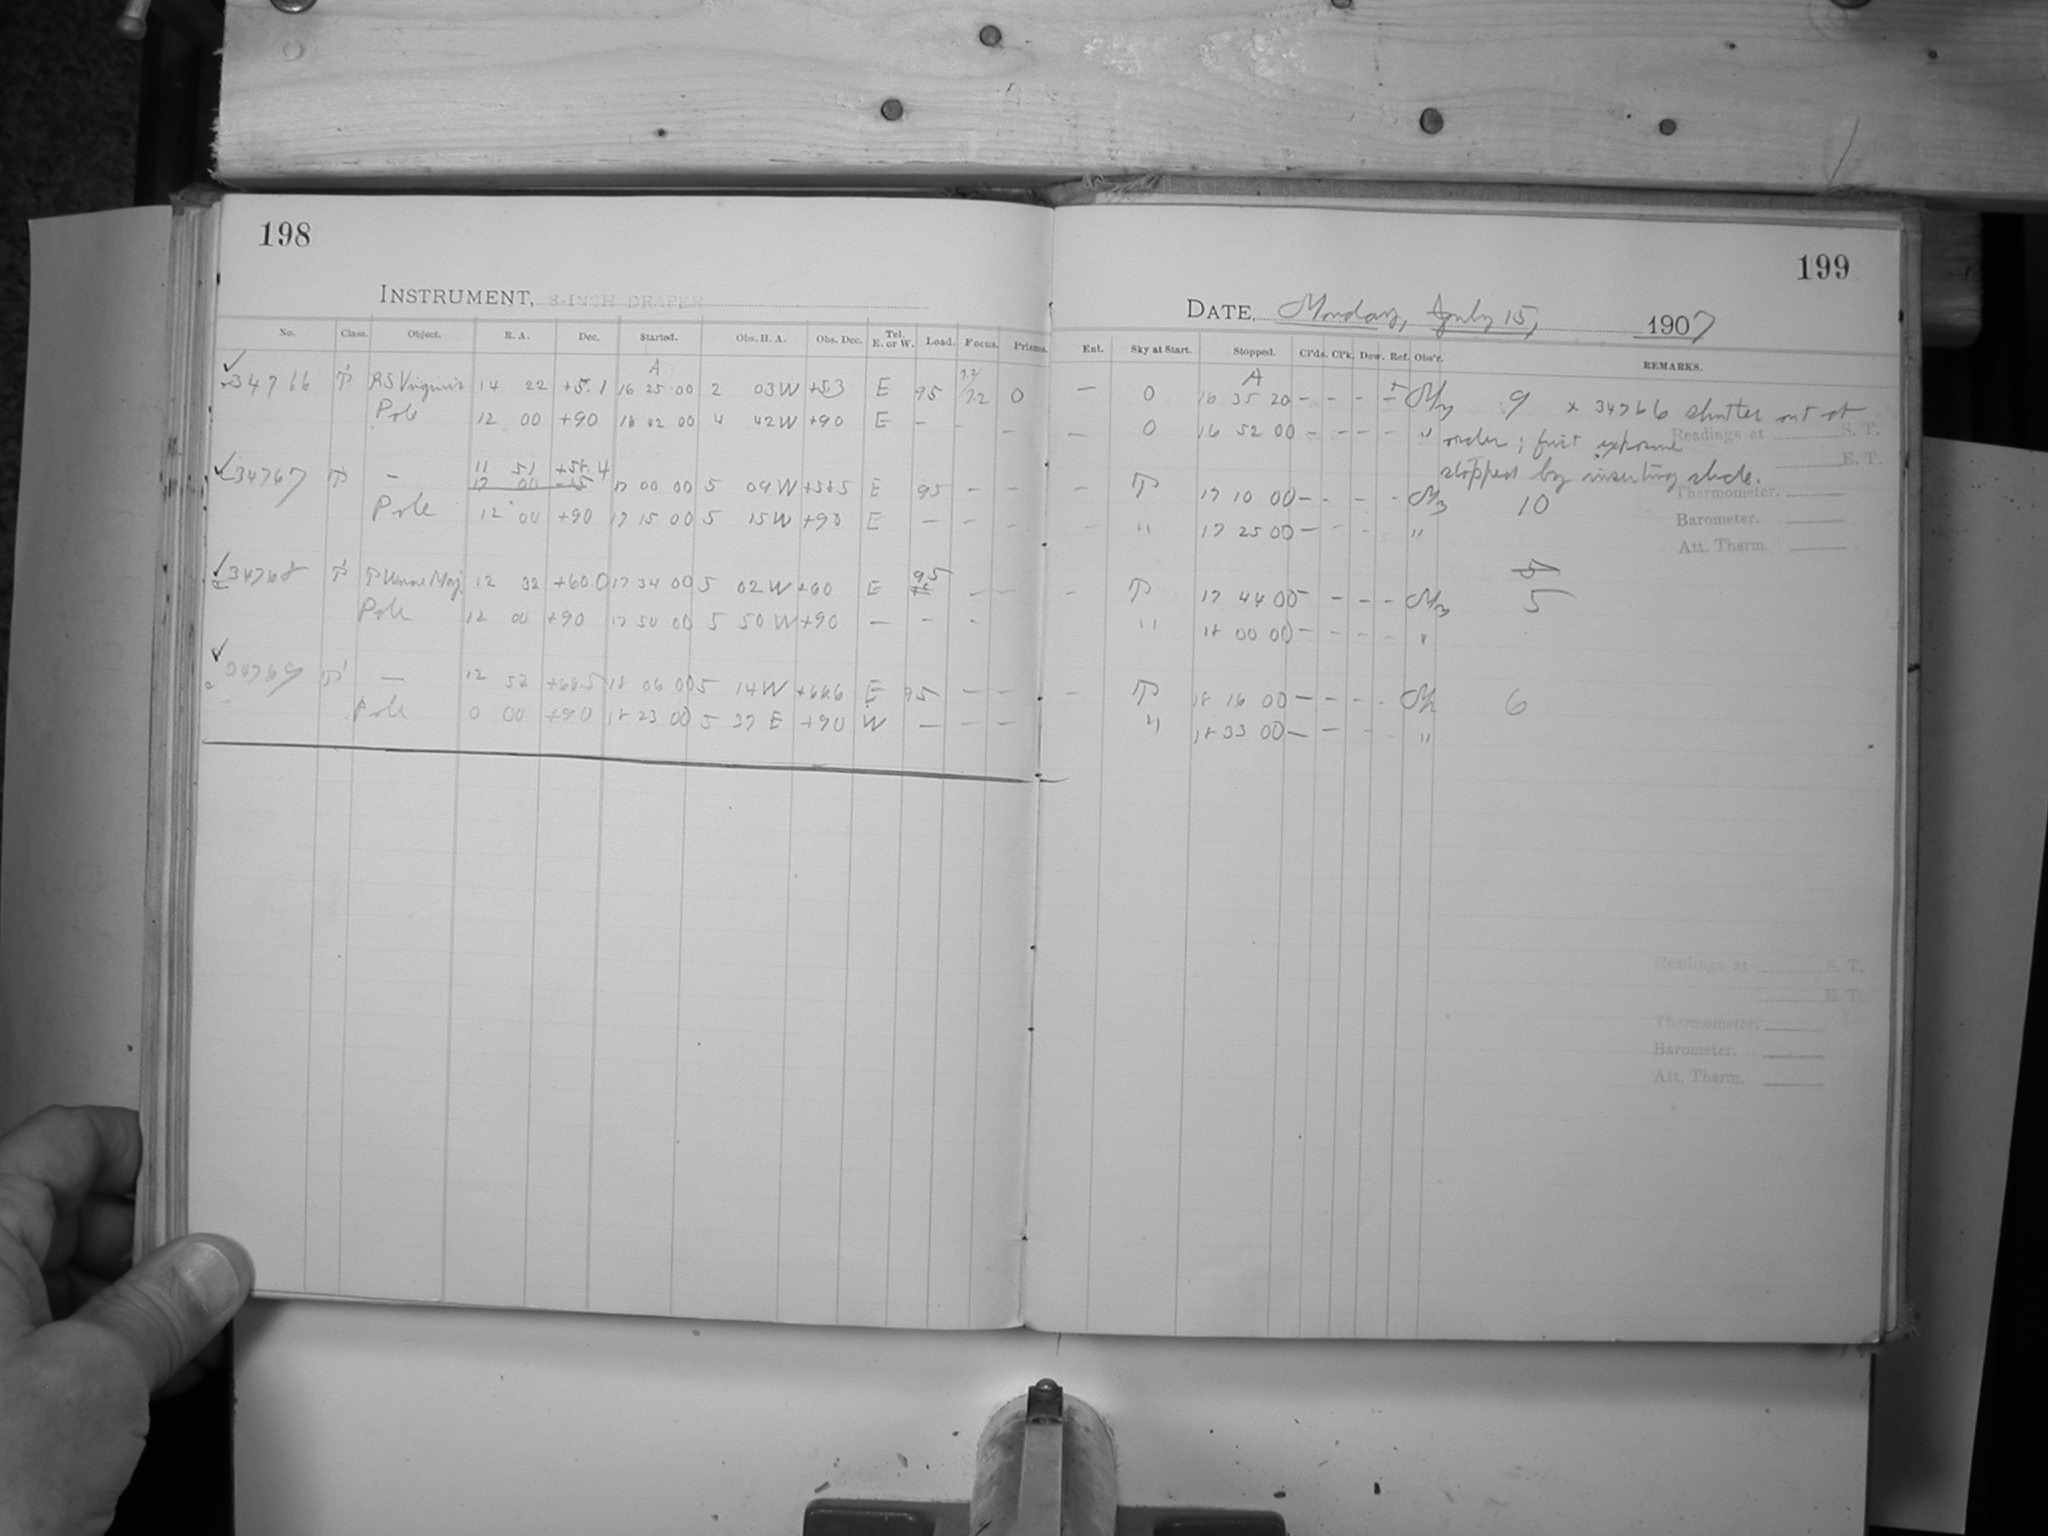 198
INSTRUMENT, 8-INCH DRAPER
No. Class. Object. R. A. Dec. Started. Obs. H. A. Obs. Dec. Tel. E. or W. Load. Focus. Prisms.
A
34766 RS Virginis 14 22 +5.1 16 25 00 2 03 W +5.3 E 95 7.2 0
Pole 12 00 +90 16 42 00 4 42 W +90 E - - -
11 51 +58.4
34767 - 17 00 00 5 09 W E 95 - -
Pole 12 00 +90 17 15 00 5 15 W +90 E - - -
34768 T Ursae Maj. 12 32 +60.0 17 34 00 5 02 W +60 E 95 - -
Pole 12 00 +90 17 50 00 5 50 W +90 - - -
34769 - 12 52 +66.5 18 06 00 5 14 W +66.6 E 95 - -
Pole 0 00 +90 18 23 00 5 37 E +90 W - - -
199
DATE, Monday, July 15, 1907
Ent. Sky at Start. Stopped. Cl'ds. Cl'k. Dew. Ref. Obs'r. REMARKS.
A
- 0 16 35 20 - - - 9 x 34766 shutter out of
- 0 16 52 00 - - - - " order; first exposure
stopped by inserting slide.
- 17 10 00 - - - - 10
- " 17 25 00 - - - "
5
- 17 44 00 - - - - 5
" 18 00 00 - - - - "
- 18 16 00 - - - - 6
" 18 33 00 - - - - "
Readings at S. T.
E. T.
Thermometer.
Barometer.
Att. Therm.
Readings at S. T.
E. T.
Thermometer.
Barometer.
Att. Therm.